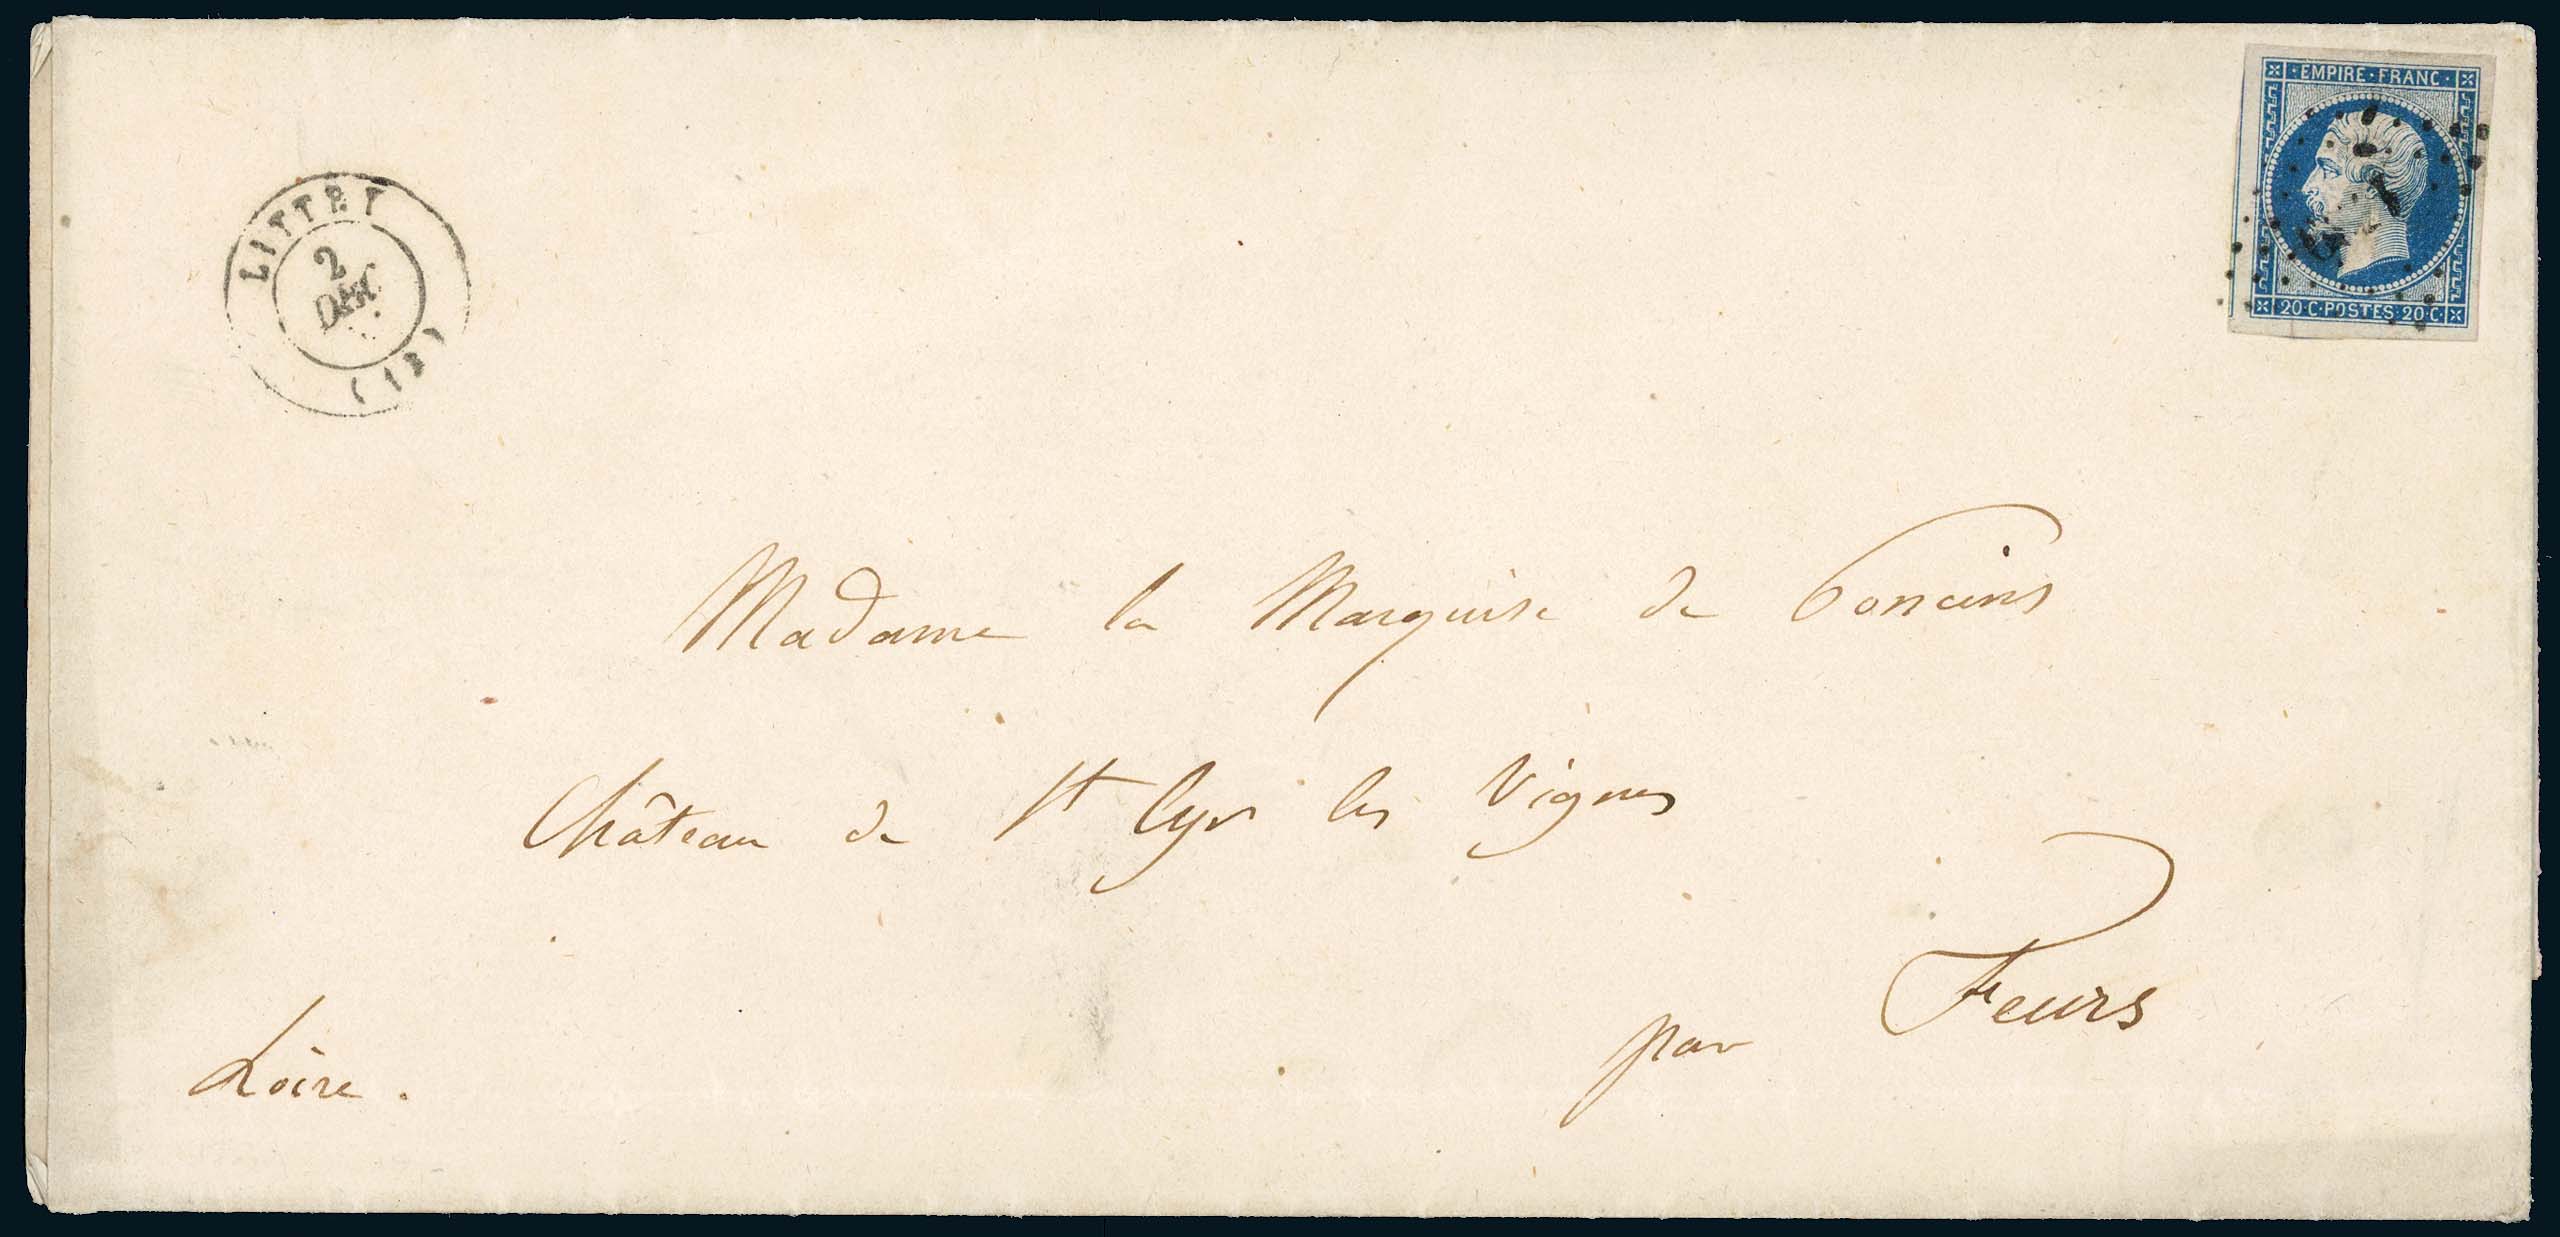 EMPIRE · FRANC ·
20 · C · POSTES · 20 · C ·
LITTRY
2
DEC
Madame la Marquise de Poncins
Château de St Cyr les Vignes
par Feurs
Loire .